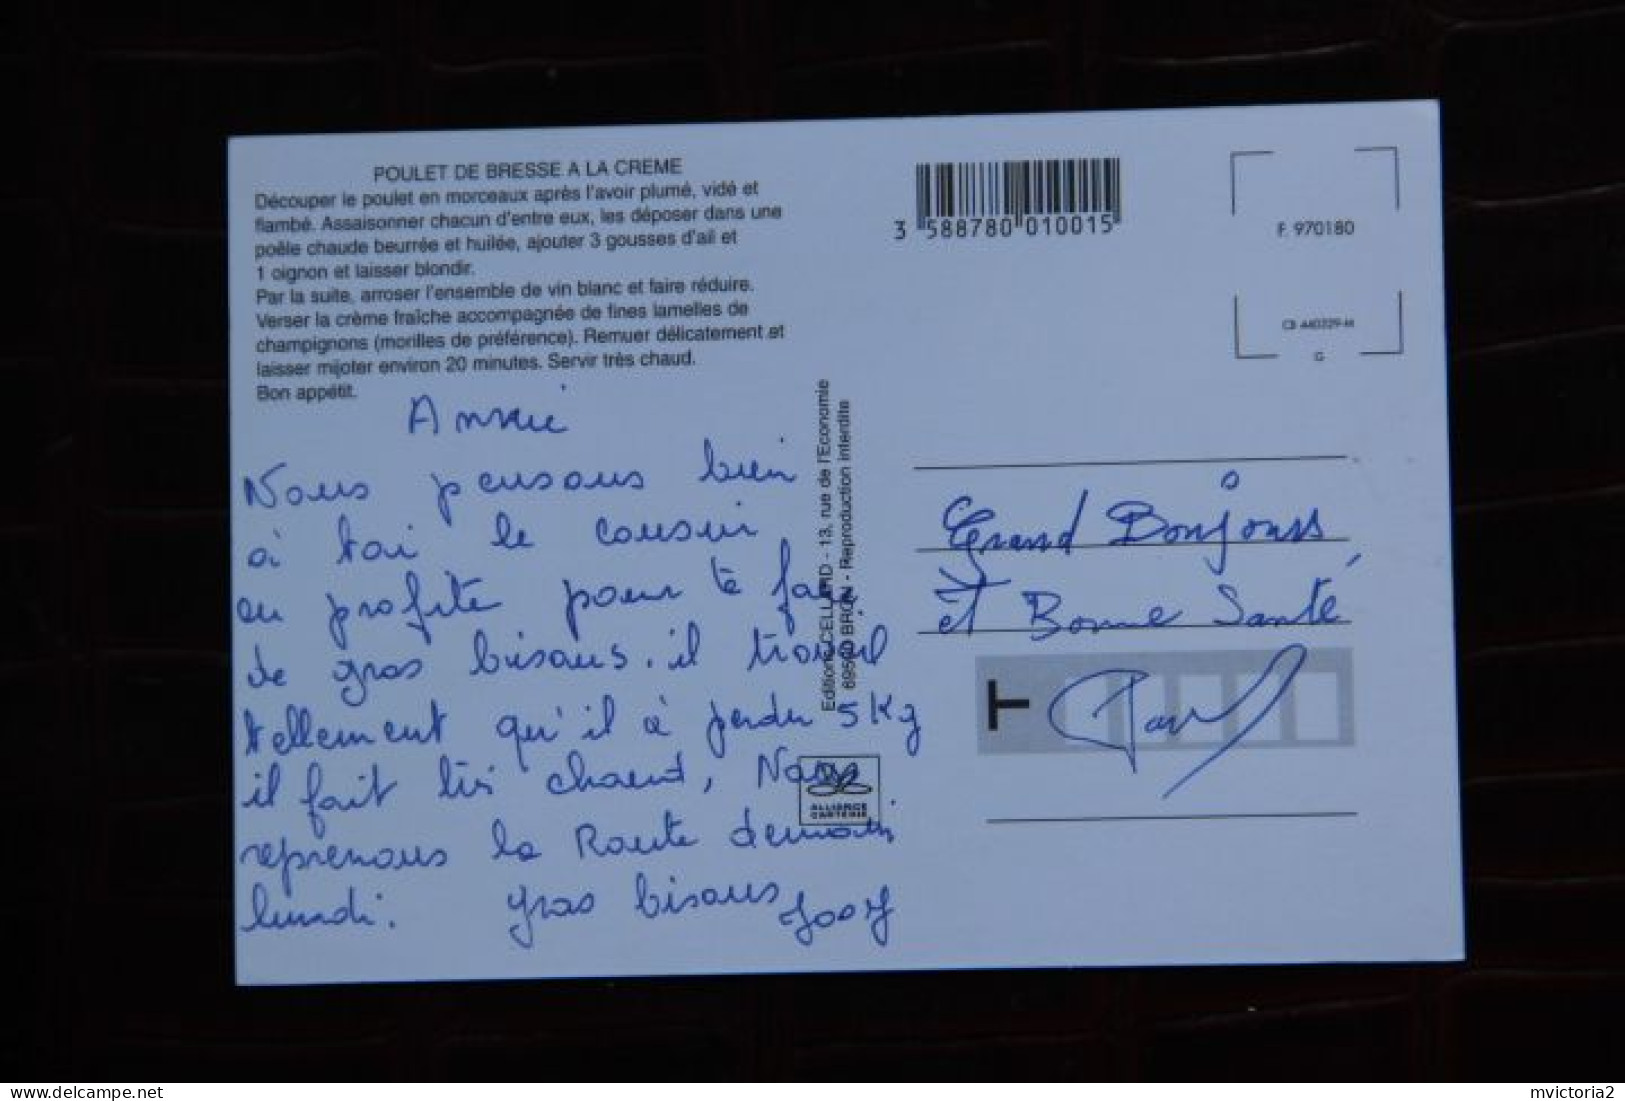 POULET DE BRESSE A LA CREME
Découper le poulet en morceaux après l'avoir plumé, vidé et
flambé. Assaisonner chacun d'entre eux, les déposer dans une
poêle chaude beurrée et huilée, ajouter 3 gousses d'ail et
1 oignon et laisser blondir.
Par la suite, arroser l'ensemble de vin blanc et faire réduire.
Verser la crème fraîche accompagnée de fines lamelles de
champignons (morilles de préférence). Remuer délicatement et
laisser mijoter environ 20 minutes. Servir très chaud.
Bon appétit.
Nous pensons bien
à toi le cousin
en profite pour te faire
de gros bisous. il travail
tellement qu'il à perdu 5 Kg
il fait très chaud, Nous
reprenons la Route demain
lundi. gros bisous
Editions CELLARD - 13, rue de l'Economie
69500 BRON - Reproduction interdite
ALLIANCE
CARTERIE
3 588780 010015
F. 970180
G
Grand Bonjours
et Bonne Santé
T
delcampe.net
mvictoria2